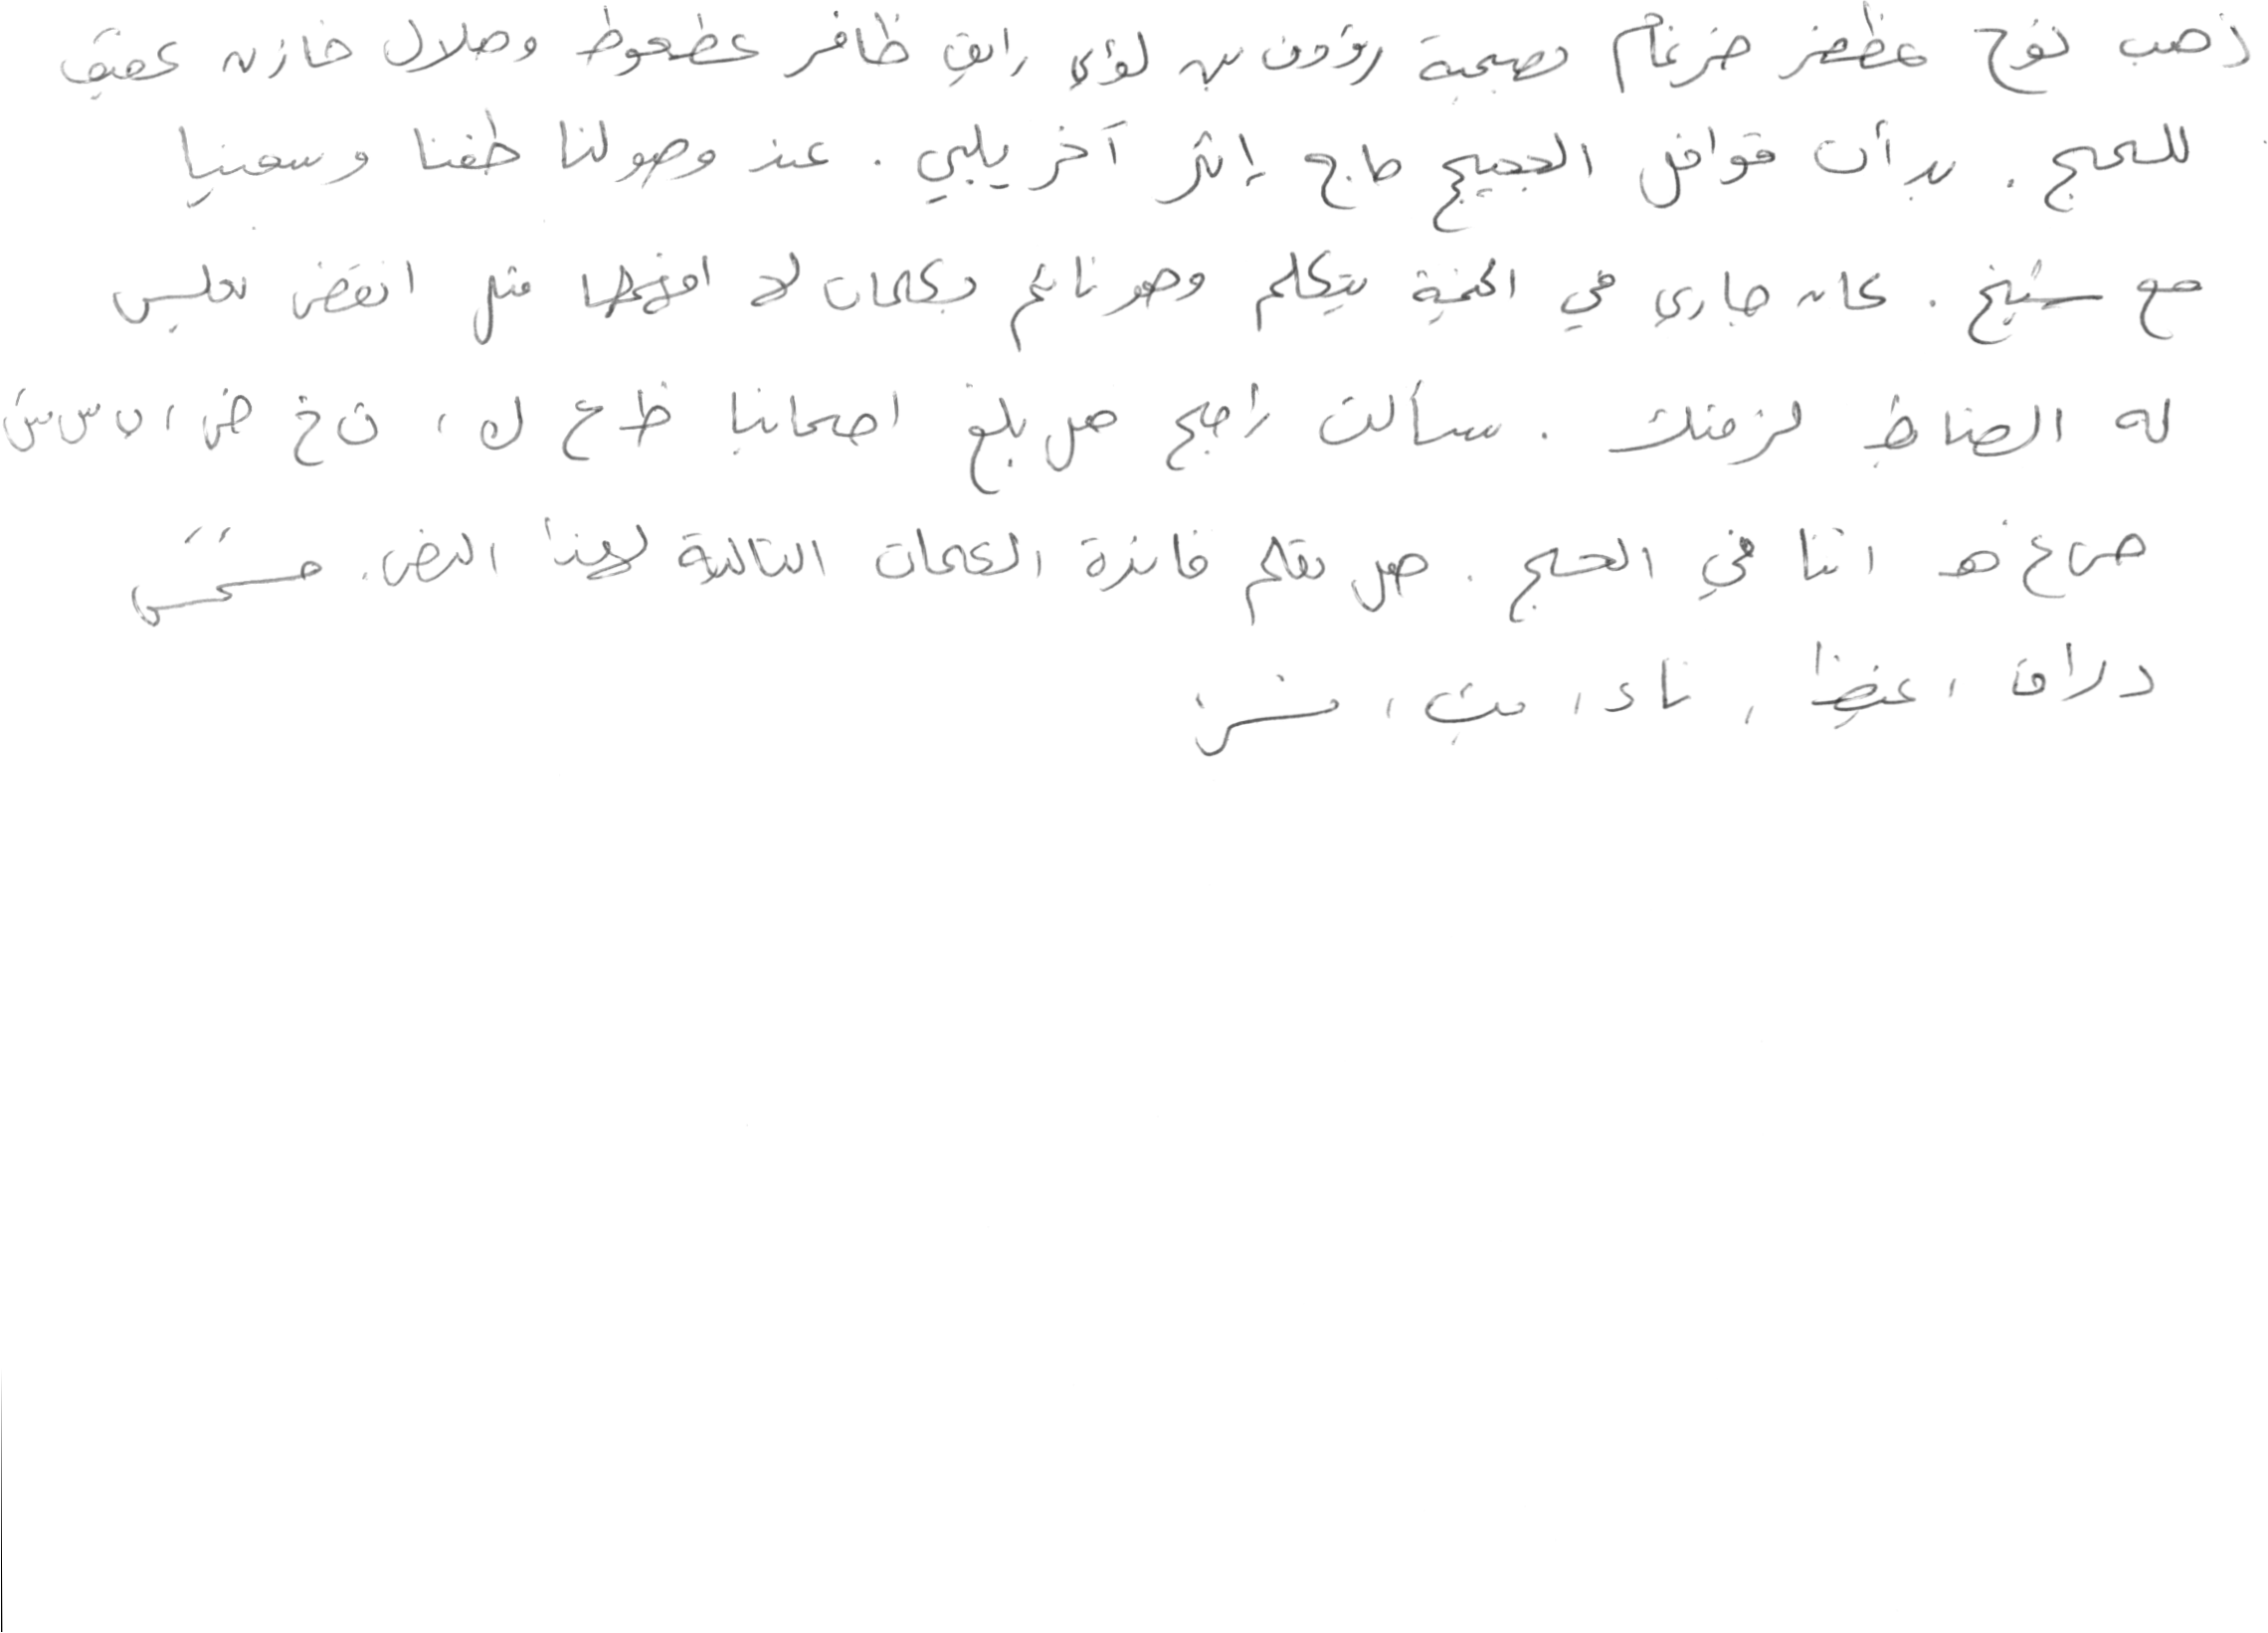 ذهب نوح غظفر ضرغام بصحبة رؤوف بن لؤي رايق ظافر عطعوط وهلال خازن عفيف
للحج . بدأت قوافل الحجيج حاج إثر آخر يلبي . عند وصولنا طفنا وسعينا
مع شيخ . كان جاري في الخيمة يتكلم وهو نائم بكلمات لا افهمها مثل انقض نعليس
له الضابط لزمتك . سألت راجح هل بلغ اصحابنا ظ ع ل ه ، ن خ ض ، ب س س ش
ص ع غ هـ اننا في الحج . هل تعلم فائزة الكلمات التالية لهذا النص . مستمسى
دلاق ، غيظا ، ناء ، بيت ،